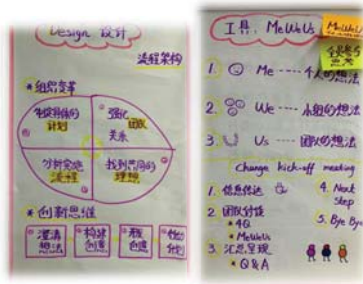 Design 设计
流程架构
*组织变革
制定具体的
计划
强化
关系
分析实施
流程
找到共同的
理想
*创新思维
澄清
想法
构建
创意
工具: MeWeUs
MeWeUs
全员参与
1. Me ---- 个人的想法
2. We ---- 小组的想法
3. Us ---- 团队的想法
Change kick-off meeting
1. 信息传达
2. 团队讨论
* 4Q
* MeWeUs
3. 汇总呈现
* Q & A
4. Next
Step
5. Bye Bye